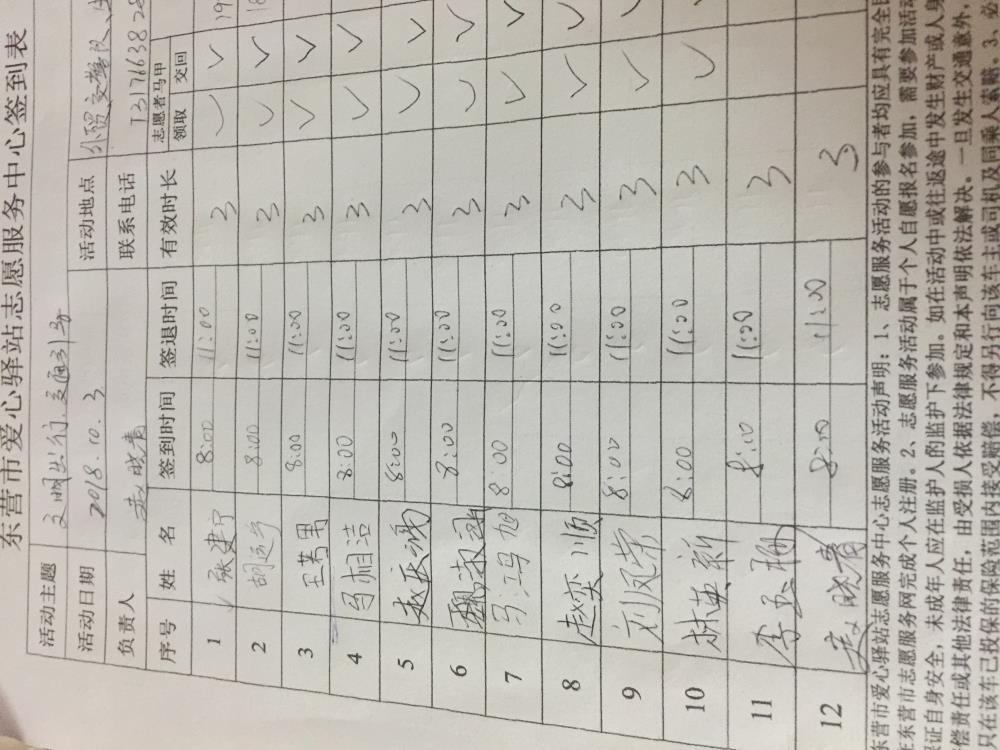 东营市爱心驿站志愿服务中心签到表
活动主题 文明出行.交通引导 活动地点
活动日期 2018.10.3 联系电话 1317638
负责人 晓青
序号 姓 名 签到时间 签退时间 有效时长 志愿者马甲 领取 交回
1 张建宁 8:00 11:00 3 ✓ ✓
2 8:00 11:00 3 ✓ ✓
3 王若男 8:00 11:00 3 ✓ ✓
4 马相洁 8:00 11:00 3 ✓ ✓
5 8:00 11:00 3 ✓ ✓
6 8:00 11:00 3 ✓ ✓
7 马鸿旭 8:00 11:00 3 ✓ ✓
8 赵奕顺 8:00 11:00 3 ✓ ✓
9 刘凤荣 8:00 11:00 3 ✓
10 林英新 8:00 11:00 3 ✓
11 李玉珊 8:00 11:00 3
12 晓青 8:00 11:00 3
东营市爱心驿站志愿服务中心志愿服务活动声明：1、志愿服务活动的参与者均应具有完全民
东营市志愿服务网完成个人注册。2、志愿服务活动属于个人自愿报名参加，需要参加活动
证自身安全，未成年人应在监护人的监护下参加。如在活动中或往返途中发生财产或人身
偿责任或其他法律责任，由受损人依据法律规定和本声明依法解决。一旦发生交通意外，
只在该车已投保的保险范围内接受赔偿，不得另行向该车主或司机及同乘人索赔。3、必